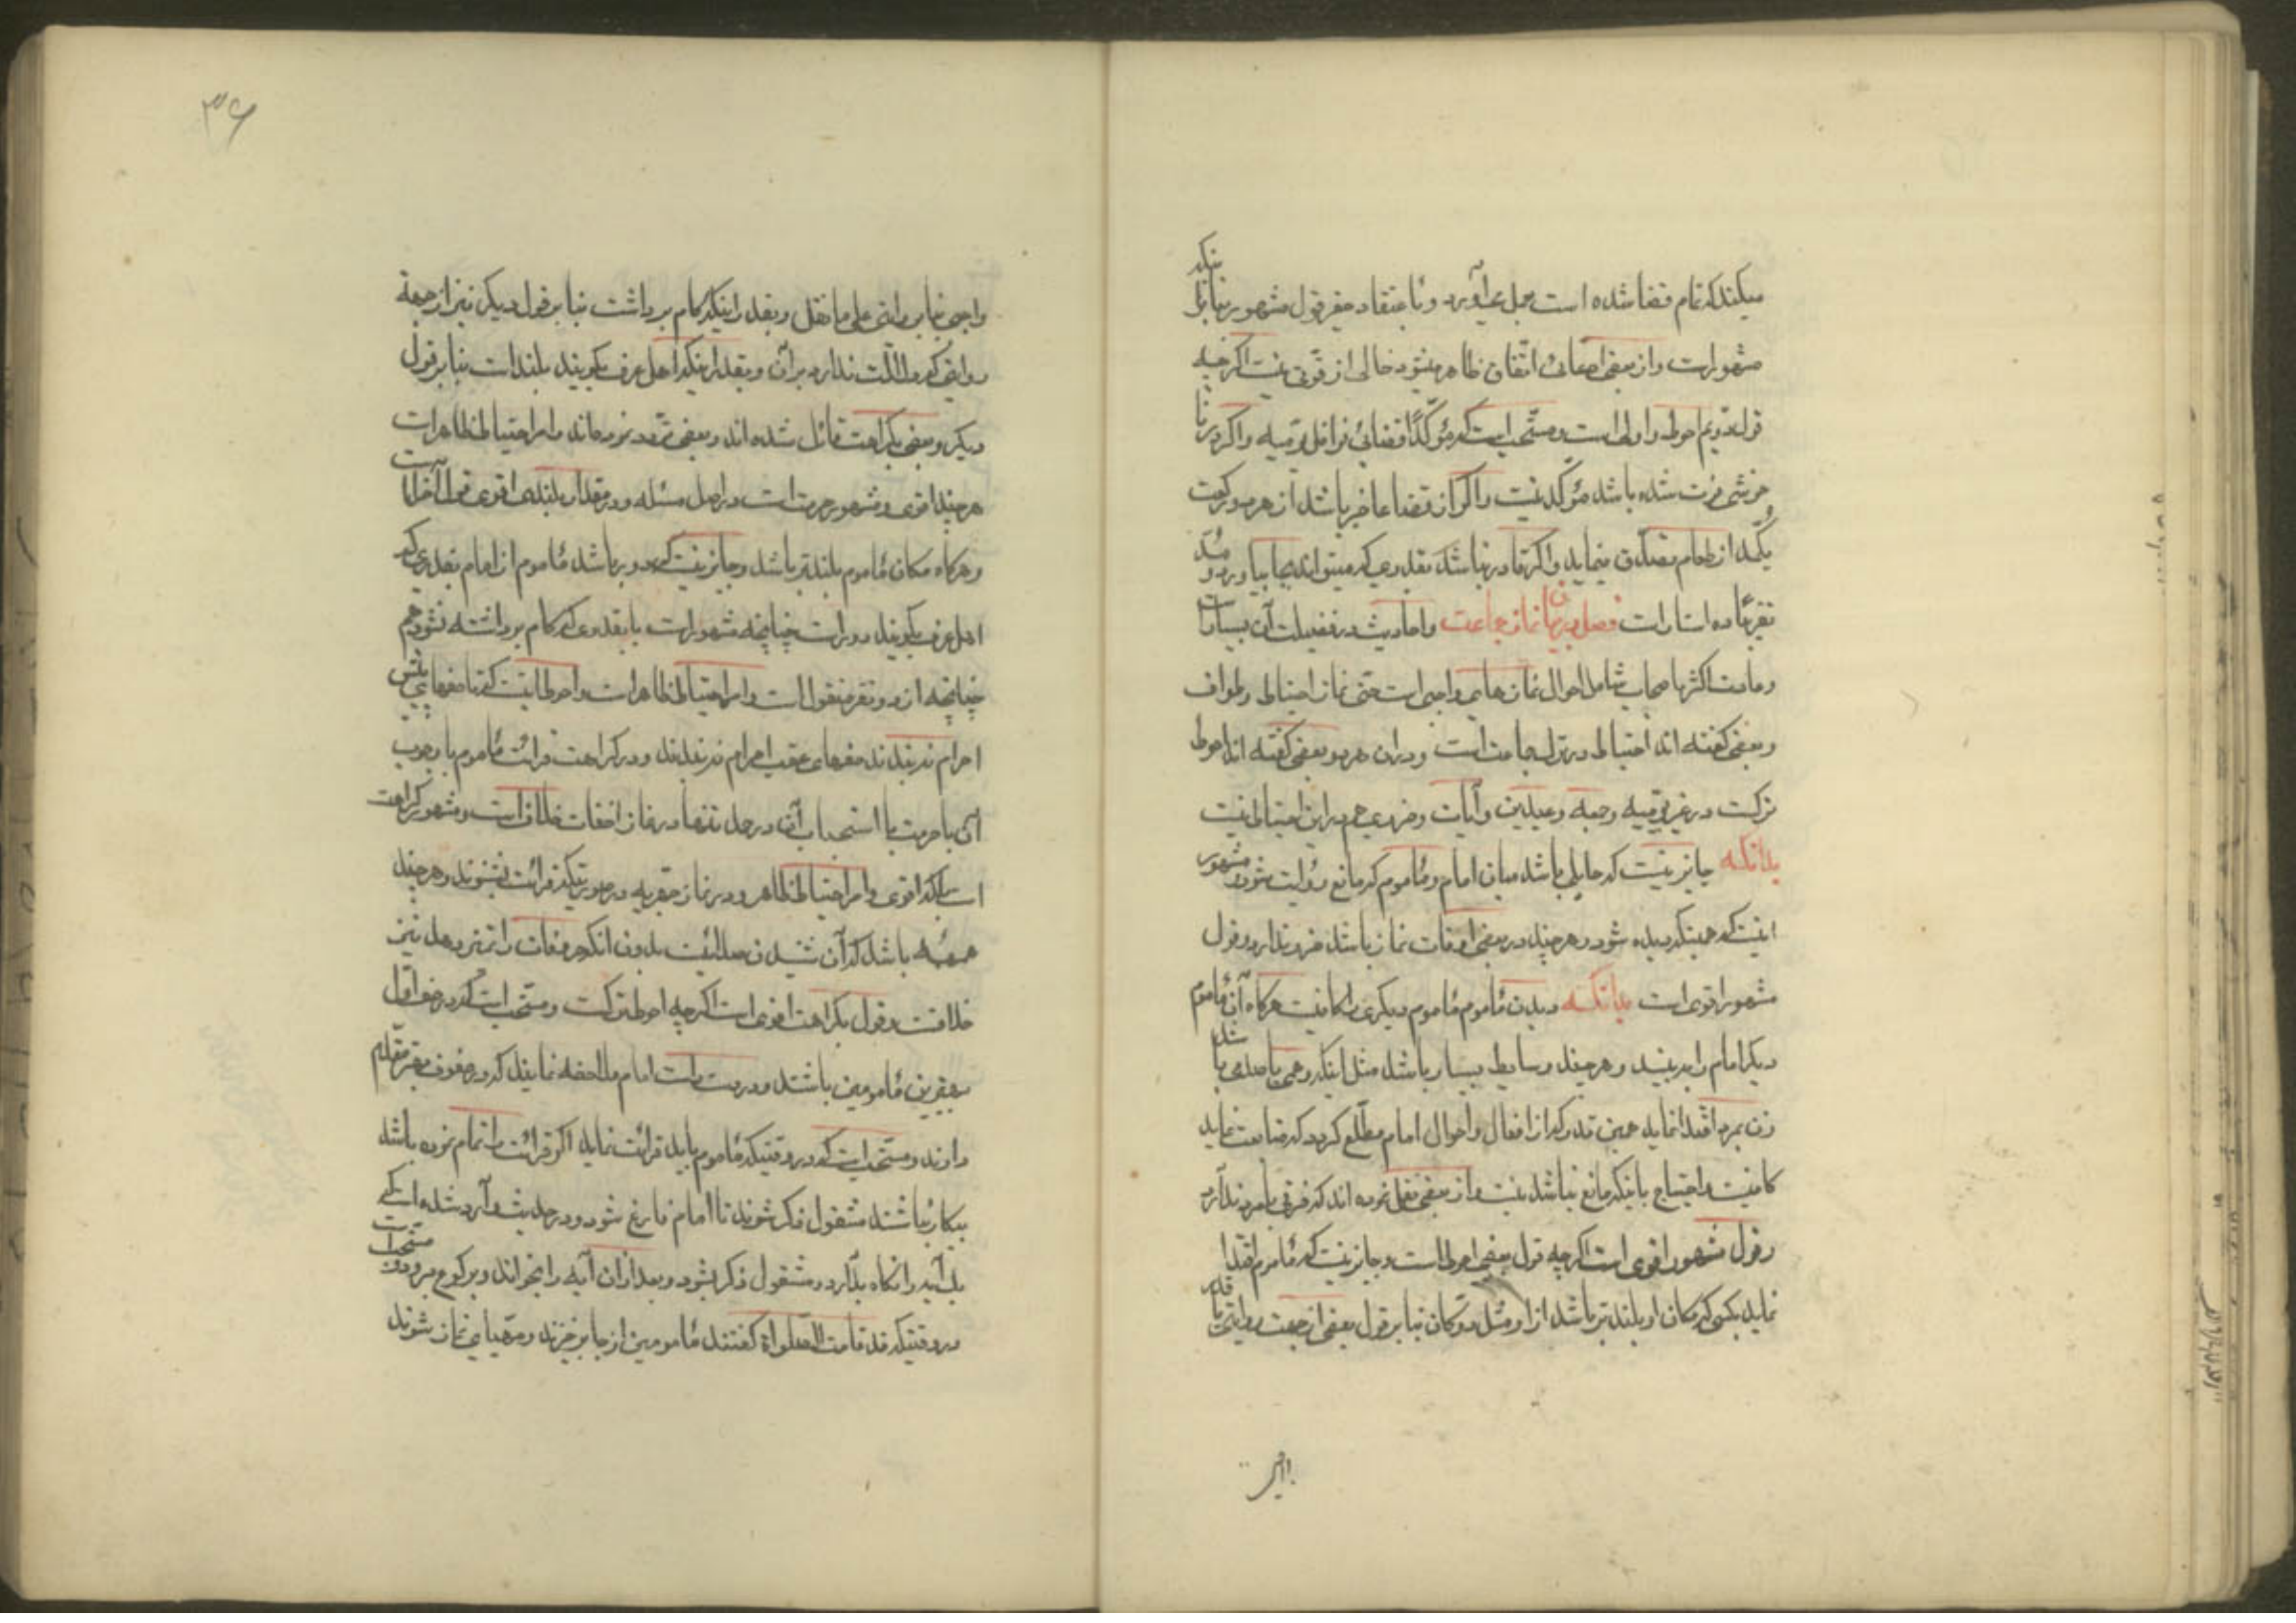 میکند که تمام قضا شده است بعمل می‌آورد و باعتقاد حقیر قول مشهور بنا بر اینکه
مشهور است و از بعضی اتفاق ظاهر میشود خالی از قوتی نیست اگر چه
قول دویم احوط و اولی است و مستحب است که مؤکدًا قضائی نوافل یومیه و اگر در
خوشی فوت شده باشد مؤکد نیست و اگر از قضا عاجز باشد از هر دو رکعت
یکمد از طعام تصدق نماید و اگر قادر نباشد بقدری که میتواند بجا بیاورد و مد
تقریبًا ده استار است فصل در بیان نماز جماعت و احادیث در فضیلت آن بسیار است
و عبارت اکثر اصحاب شامل احوال نمازهای واجبی است حتی نماز احتیاط و طواف
و بعضی گفته اند احتیاط در ترک جماعت است و در ان هر دو بعضی گفته اند احوط
ترکست در غیر یومیه و جمعه و عیدین و آیات و در این احتیاط نیست
بدانکه جایز نیست که حایلی باشد میان امام و مأموم که مانع رؤیت شود و مشهور
اینست که همینکه دیده شود و هر چند در بعضی اوقات نماز باشد ضرر ندارد و قول
مشهور اقوی است بدانکه دیدن مأموم مأموم دیگری را کافیست هرگاه آن مأموم
دیگر امام را ببیند و هر چند وسایط بسیار باشد مثل اینکه باشد
زن بمرد اقتدا نماید همین قدر که از افعال و احوال امام مطلع گردد که متابعت نماید
کافیست و احتیاج باینکه مانع نباشد نیست و از بعضی نقل نموده اند که فرقی با مرد ندارد
و قول مشهور اقوی است اگر چه قول بعضی احوط است و جایز نیست که مأموم اقتدا
نماید بکسی که مکان او بلندتر باشد از او مثل دوکان بنا بر قول بعضی از جهت روایتی
۳۶
واجبی بنا بر روایتی علی ما نقل و بقدر اینکه کام برداشت بنا بر قول دیگر نیز از جهة
روایتی که دلالت ندارد بر آن و بقدر اینکه اهل عرف بگویند بلند است بنا بر قول
دیگر و بعضی بکراهت قائل شده اند و بعضی تردد نموده اند و امر احتیاط ظاهر است
هر چند اقوی و مشهور حرمت است در اصل مسئله و در مقدار بلندی اقوی قول است اما
و هرگاه مکان مأموم بلندتر باشد و جایز نیست که دور باشد مأموم از امام بقدری که
اهل عرف بگویند دور است چنانچه مشهور است یا بقدری که کام برداشته نشود هم
چنانچه از دو نفر منقول است و امر احتیاط ظاهر است و احوط اینست که تا صفهای پیش
احرام نبندند صفهای عقب احرام نبندند و در کراهت قرائت مأموم یا وجوب
آن یا حرمت یا استحباب آن در حمد تنها در نماز اخفات خلاف است و مشهور کراهت
است بلکه اقوی و امر احتیاط ظاهر و در نماز جهریه در صورتیکه قرائت نشنوند و هر چند
همهمه باشد که آن شنیدن صدائیست بدون آنکه حروفات را تمیز دهد نیز
خلافست و قول بکراهت اقوی است اگر چه احوط ترکست و مستحب است که در صف اول
بهترین مأمومین باشند و در سمت راست امام ملاحظه نمایند که در صفوف بهتر مقدم
دارند و مستحب است که در وقتیکه مأموم باید قرائت نماید اگر قرائت را تمام نموده باشد
بیکار نباشند مشغول ذکر شوند تا امام فارغ شود و در حدیث وارد شده است که
یک آیه را نگاه بدارد و مشغول ذکر بشود و بعد از ان آیه را بخواند و برکوع برود و مستحب است
در وقتیکه قد قامت الصلواة گفتند مأمومین از جا برخیزند و مهیای نماز شوند